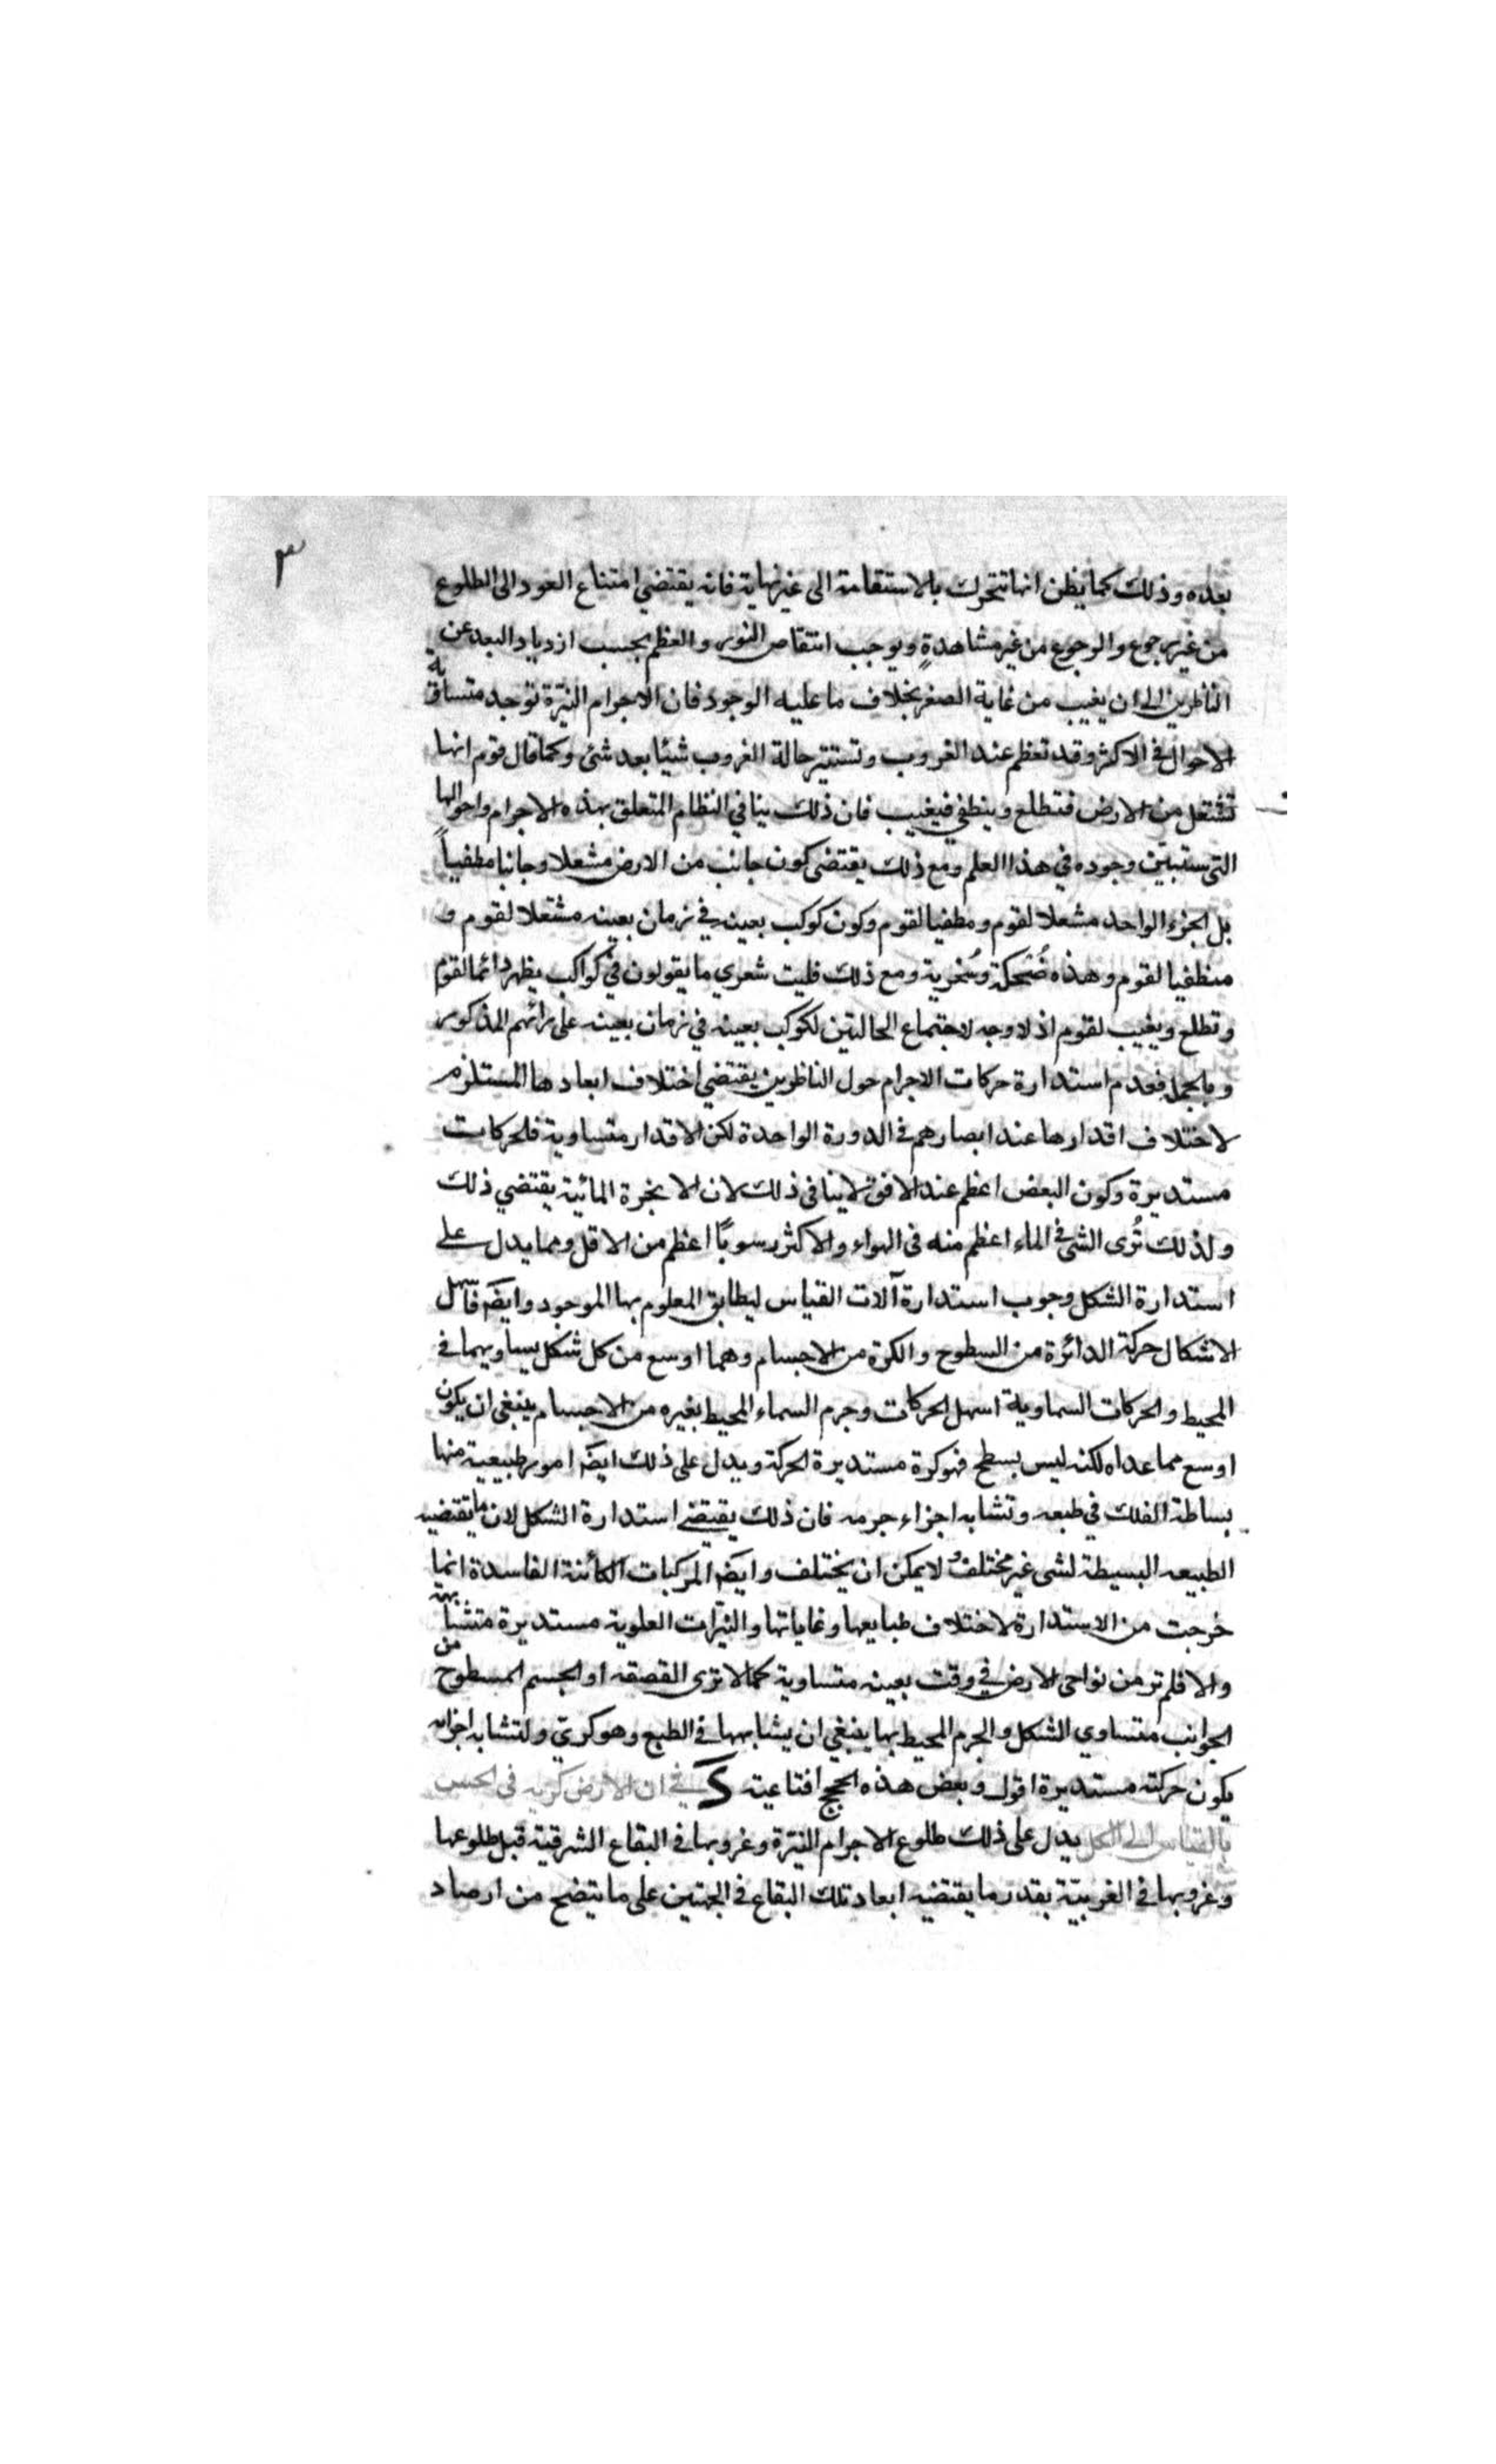 ٣
بعده وذلك كما يظن انها تتحرك بالاستقامة الى غير نهاية فانه يقتضي امتناع العود الى الطلوع
من غير رجوع والرجوع من غير مشاهدةٍ ويوجب انتقاص النور والعظم بحسب ازدياد البعد عن
الناظرين الى ان يغيب من غاية الصغر بخلاف ما عليه الوجود فان الاجرام النيّرة توجد متساوية
الاحوال في الاكثر وقد تعظم عند الغروب وتستتر حالة الغروب شيئا بعد شئ وكما قال قوم انها
تشتعل من الارض فتطلع وينطفي فيغيب فان ذلك ينافي النظام المتعلق بهذه الاجرام واحوالها
التي ستبين وجوده في هذا العلم ومع ذلك يقتضي كون جانب من الارض مشعلا وجانبا مطفياً
بل الجزء الواحد مشعلا لقوم ومطفيا لقوم وكون كوكب بعينه في زمان بعينه مشتعلا لقوم و
منطفيا لقوم وهذه ضُحكة وسُخرية ومع ذلك فليت شعري ما يقولون في كواكب يظهر دائما لقوم
وتطلع ويغيب لقوم اذ لا وجه لاجتماع الحالتين لكوكب بعينه في زمان بعينه على رائهم المذكور
وبالجملة فعدم استدارة حركات الاجرام حول الناظرين يقتضي اختلاف ابعادها المستلزم
لاختلاف اقدارها عند ابصارهم في الدورة الواحدة لكن الاقدار متساوية فالحركات
مستديرة وكون البعض اعظم عند الافق لا ينافي ذلك لان الابخرة المائية يقتضي ذلك
ولذلك تُرى الشئ في الماء اعظم منه في الهواء والاكثر رسوبًا اعظم من الاقل ومما يدل على
استدارة الشكل وجوب استدارة آلات القياس ليطابق المعلوم بها الموجود وايضً فاسهل
الاشكال حركة الدائرة من السطوح والكرة من الاجسام وهما اوسع من كل شكل يساويهما في
المحيط والحركات السماوية اسهل الحركات وجرم السماء المحيط بغيره من الاجسام ينبغي ان يكون
اوسع مما عداه لكنه ليس بسطح فهو كرة مستديرة الحركة ويدل على ذلك ايضً امور طبيعية منها
بساطة الفلك في طبعه وتشابه اجزاء جرمه فان ذلك يقتضي استدارة الشكل لان ما تقتضيه
الطبيعه البسيطة لشئ غير مختلف لا يمكن ان يختلف وايضً المركبات الكائنة الفاسدة انما
خرجت من الاستدارة لاختلاف طبايعها وغاياتها والنيّرات العلوية مستديرة متشابهة
والا فلم تر من نواحى الارض في وقت بعينه متساوية كما لا ترى القصقه او الجسم المسطوح من
الجوانب متساوي الشكل والجرم المحيط بها ينبغي ان يشابهها في الطبع وهو كريّ ولتشابه اجزائه
يكون حركته مستديرة اقول وبعض هذه الحجج اقناعية في ان الارض كريه في الحس
بالقياس الى الكل يدل على ذلك طلوع الاجرام النيّرة وغروبها في البقاع الشرقية قبل طلوعها
وغروبها في الغربيّة بقدر ما يقتضيه ابعاد تلك البقاع في الجهتين على ما يتضح من ارصاد